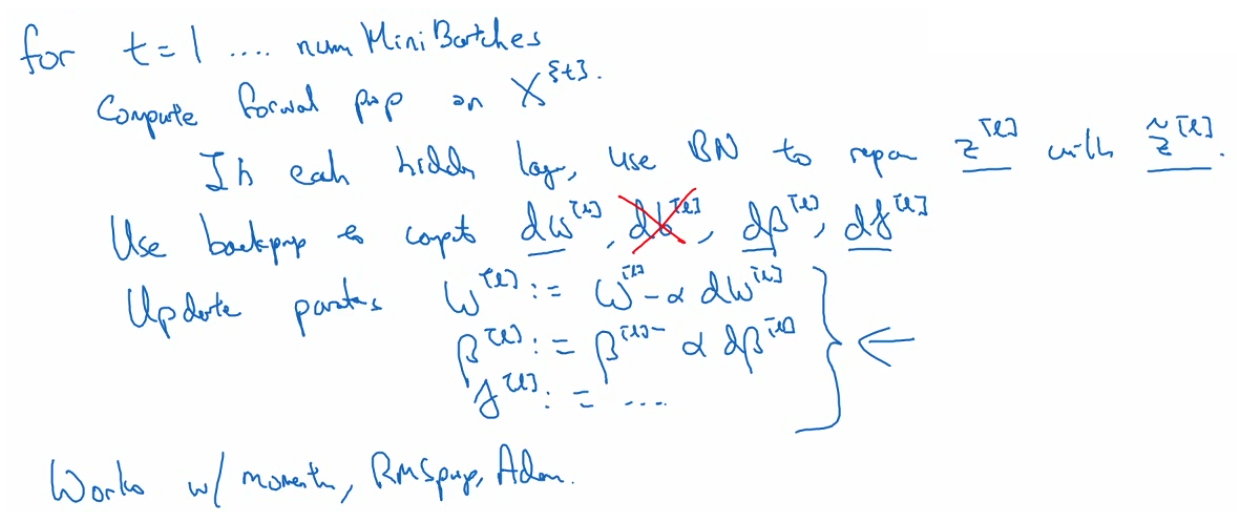 for t = 1 .... num Mini Batches
Compute forwal prop on X^{t}.
In each hidden lay, use BN to repar z^[l] with z̃^[l].
Use backprop to compt dw^[l], db^[l], dβ^[l], dγ^[l]
Update parates w^[l] := w^[l] - α dw^[l]
β^[l] := β^[l] - α dβ^[l]
γ^[l] := ...
Works w/ momentm, RMSprop, Adam.